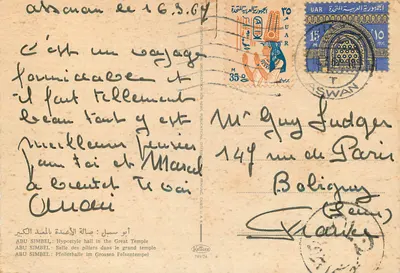 Assouan le 16.3.67
c'est un voyage
formidable et
il fait tellement
beau tant y est
meilleurs pensées
pour toi et Marcel
a bientot te voir
Mr Guy Judger
147 rue de Paris
Bobigny
(Seine)
France
أبو سمبل : صالة الأعمدة بالمعبد الكبير
ABU SIMBEL : Hypostyle hall in the Great Temple
ABU SIMBEL : Salle des piliers dans le grand temple
ABU SIMBEL : Pfeilerhalle im Grossen Felsentempel
UAR
٣٥
35
M
UAR
15
١٥
T
ASWAN